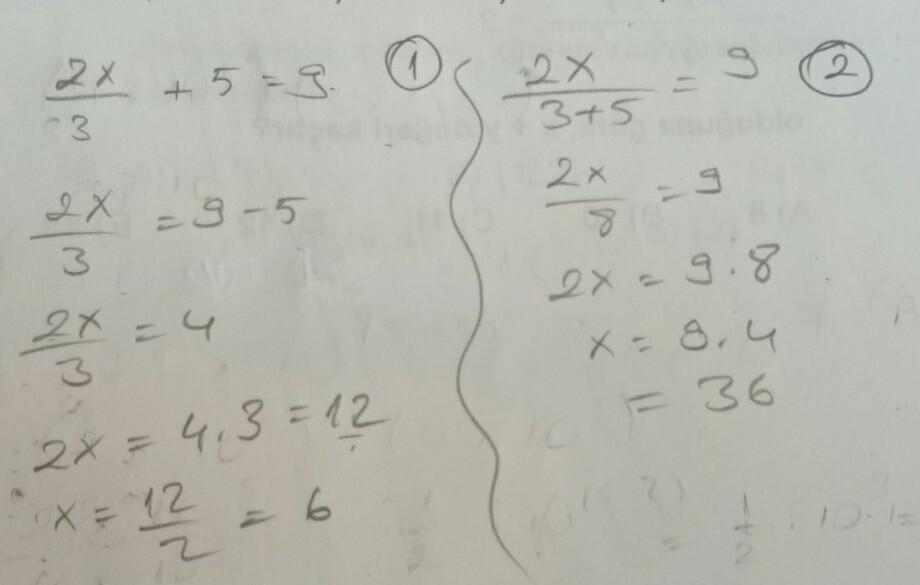 2x/3 + 5 = 9 ①
2x/3 = 9 - 5
2x/3 = 4
2x = 4.3 = 12
x = 12/2 = 6
2x/(3+5) = 9 ②
2x/8 = 9
2x = 9.8
x = 9.4
= 36